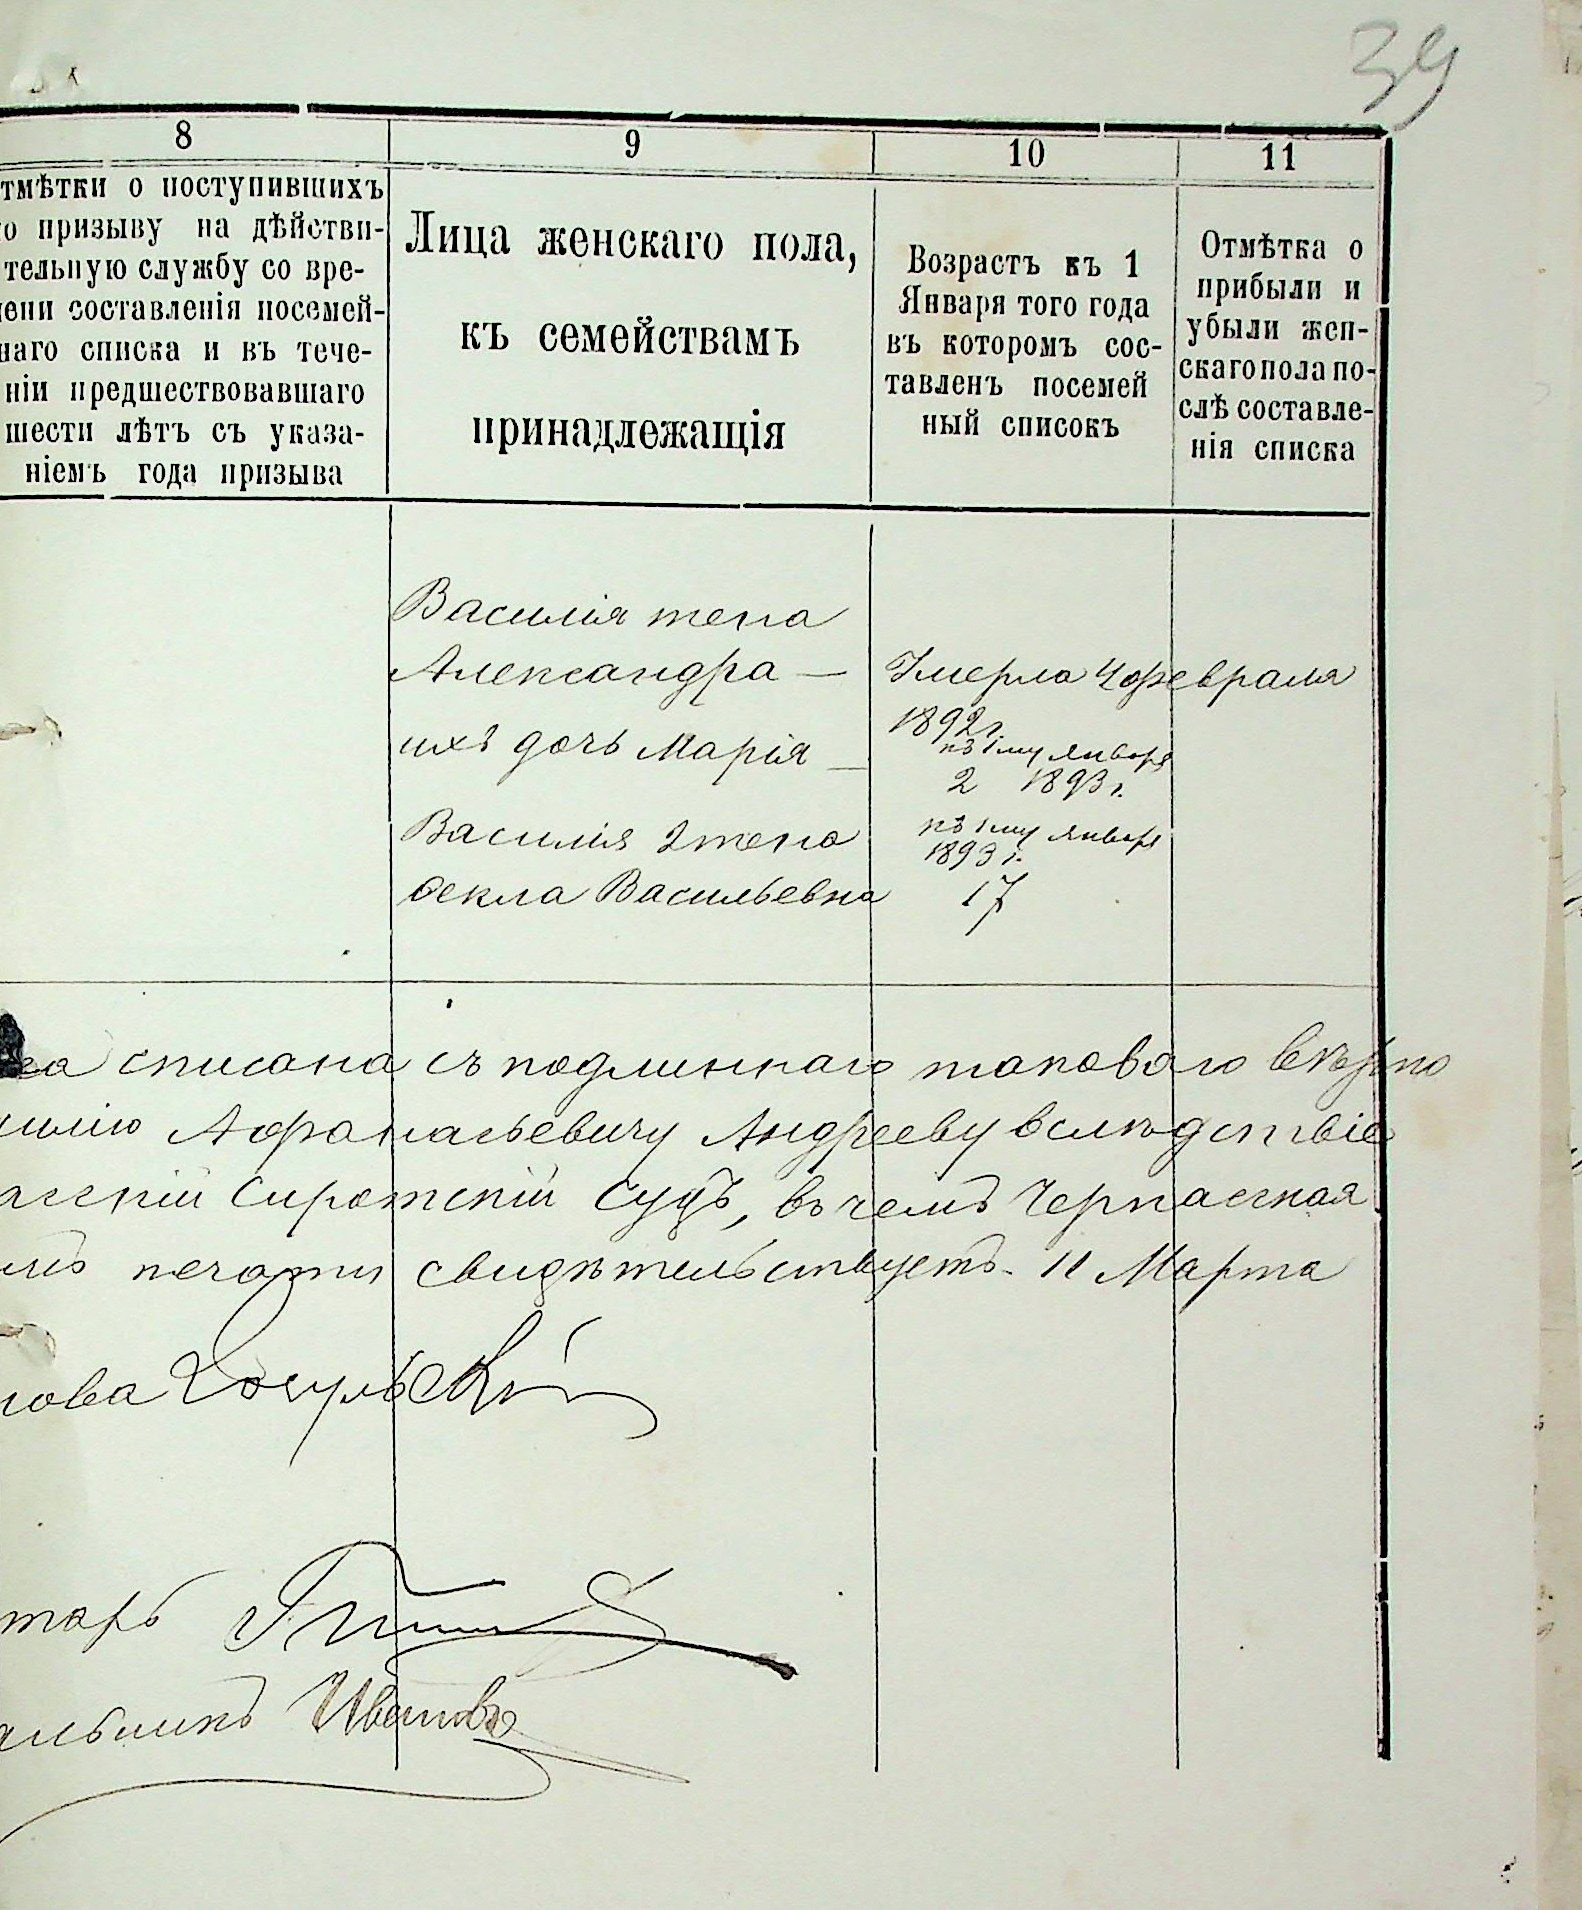 39
8 9 10 11
тмѣтки о поступившихъ
о призыву на дѣйстви-
тельную службу со вре-
ени составленія посемей-
наго списка и въ тече-
ніи предшествовавшаго
шести лѣтъ съ указа-
ніемъ года призыва
Лица женскаго пола,
къ семействамъ
принадлежащія
Возрастъ къ 1
Января того года
въ которомъ сос-
тавленъ посемей
ный списокъ
Отмѣтка о
прибыли и
убыли жен-
скаго пола по-
слѣ составле-
нія списка
Василія жена
Александра —
Умерла 4 февраля
1892 г.
ихъ дочь Марія —
къ 1му января
2 1893 г.
Василія 2 жена
Ѳекла Васильевна
къ 1му января
1893 г.
17
списана съ подлиннаго таковаго
илію Афонасьевичу Андрееву вслѣдствіе
асскій Сиротскій Судъ, въ чемъ Черкасская
печати свидѣтельствуетъ. 11 Марта
лова
тарь
Ивановъ